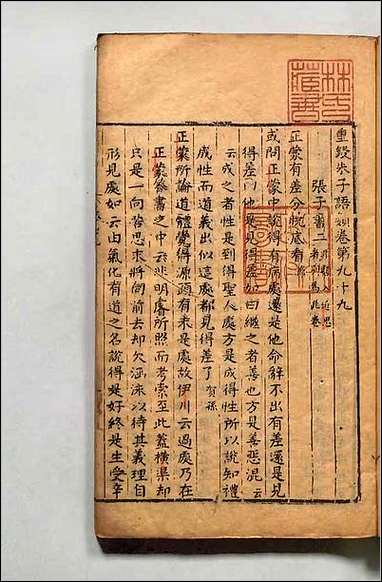 重鋟朱子語類卷第九十九
張子書二 非類入近思者別爲此卷
正蒙有差分曉底看
或問正蒙中說得有病處還是他命辭不出有差還是見
得差曰他是見得差如曰繼之者善也方是善惡混云
云成之者性是到得聖人處方是成得性所以說知禮
成性而道義出似這處都見得差了 賀孫
正蒙所論道體覺得源頭有未是處故伊川云過處乃在
正蒙答書之中云非明睿所照而考索至此蓋橫渠却
只是一向苦思求將向前去却欠涵泳以待其義理自
形見處如云由氣化有道之名說得是好終是生受辛